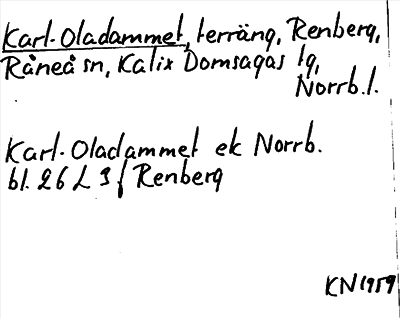 Karl-Oladammet, terräng, Renberg,
Råneå sn, Kalix Domsagas tg,
Norrb.l.
Karl-Oladammet ek Norrb.
bl. 26 L 3 f Renberg
KN 1959